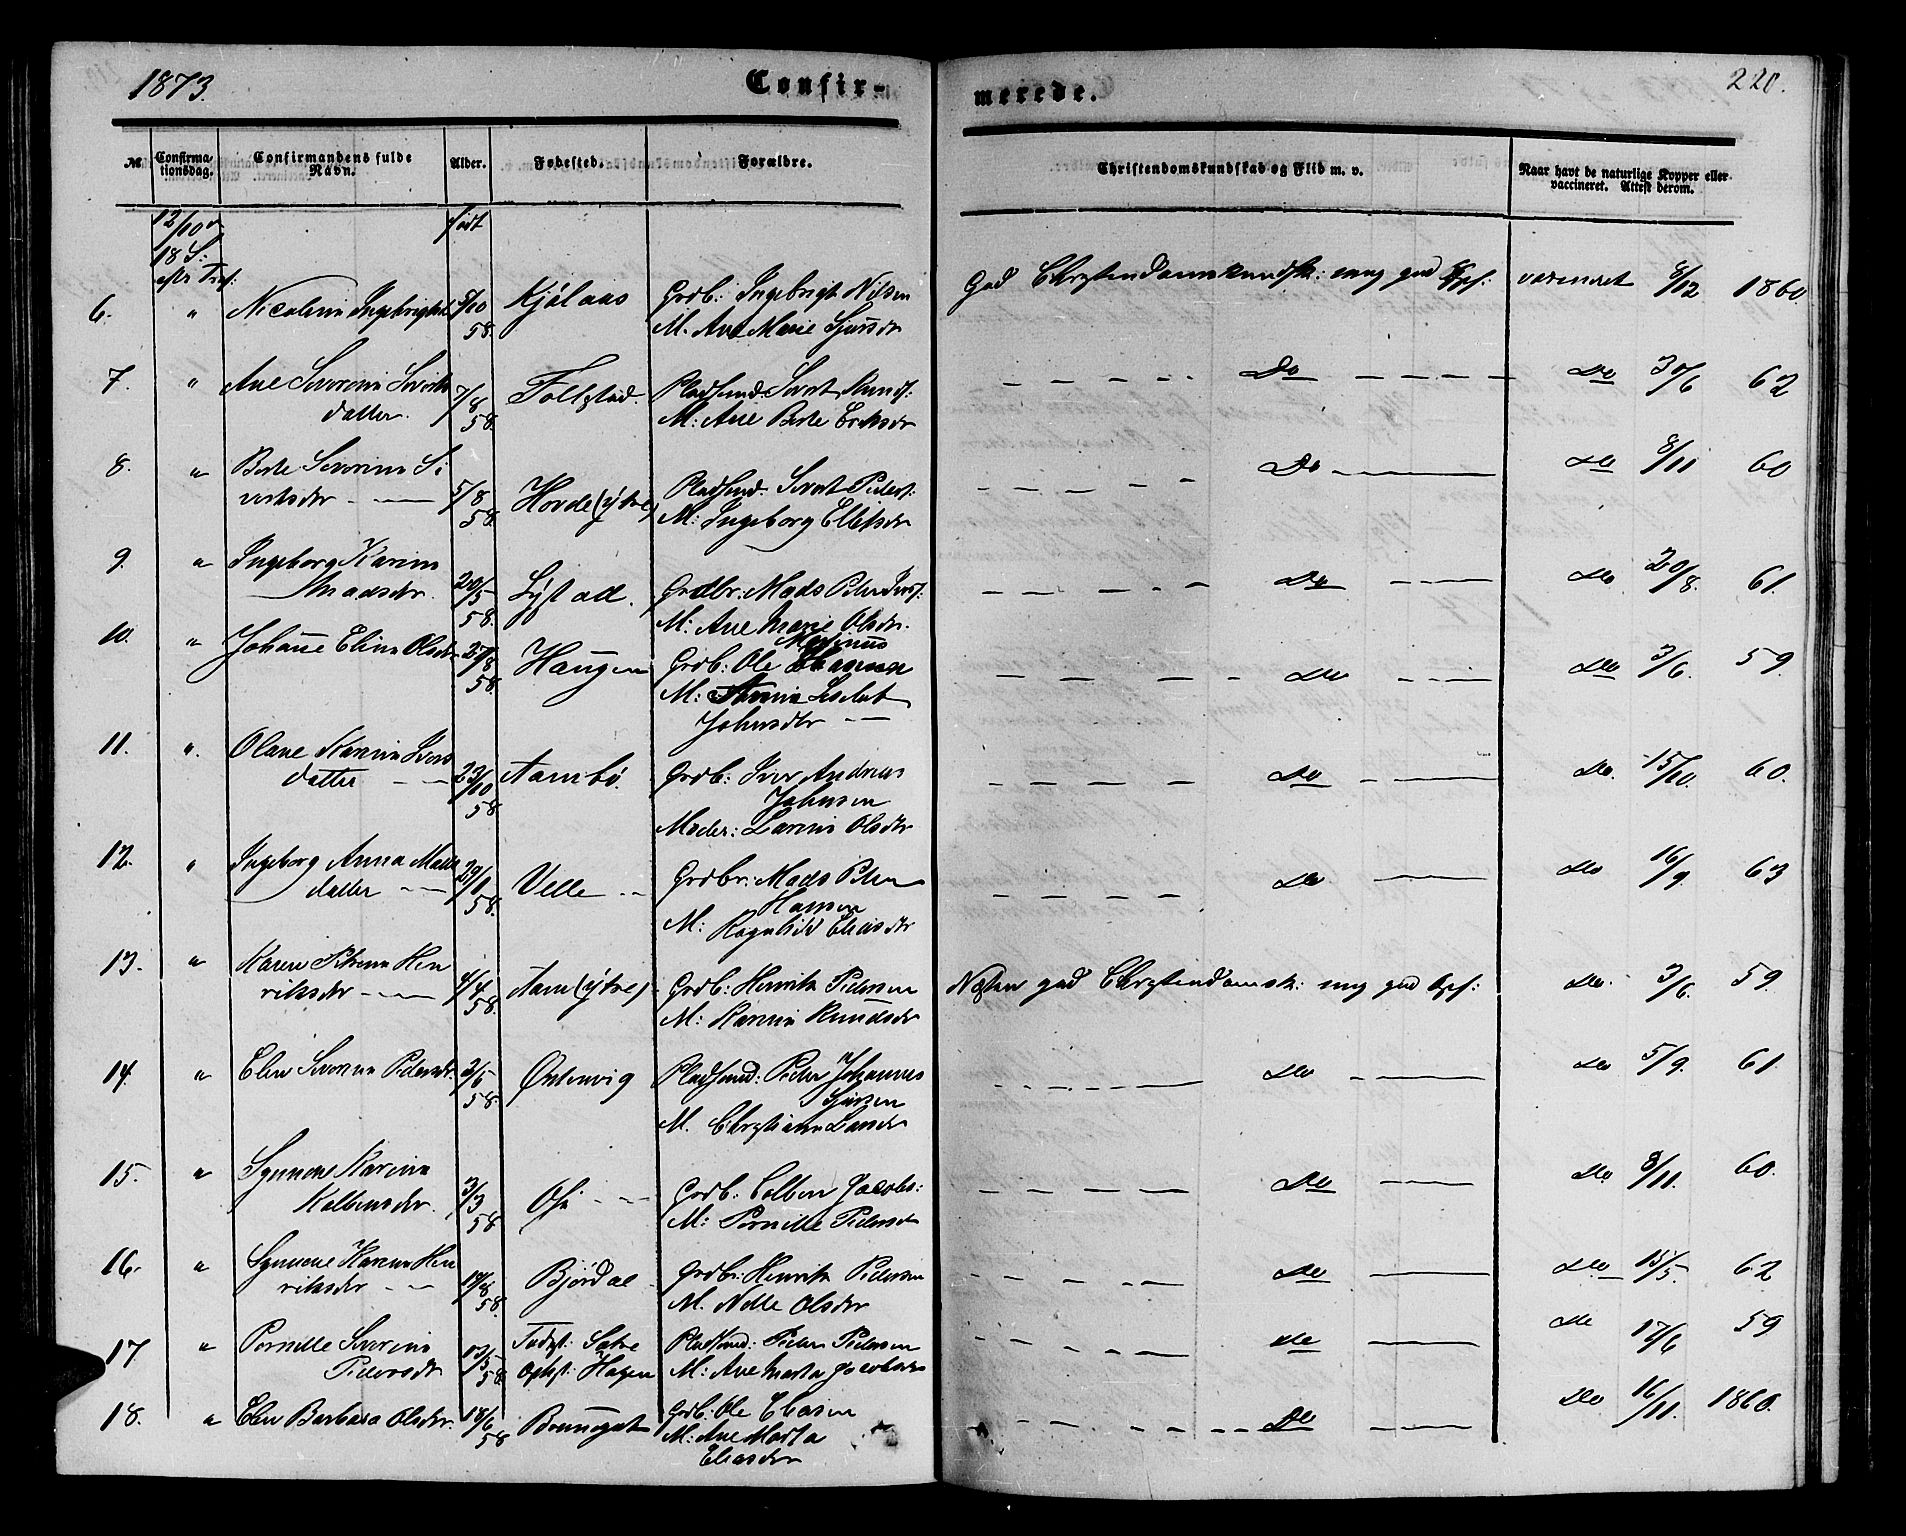 1873.
Confir-
merede.
220.
№
Confirma-
tionsdag.
Confirmandens fulde
Navn.
Alder.
Fødested.
Forældre.
Christendomskundskab og Flid m. v.
Naar havt de naturlige Kopper eller
vaccineret. Attest derom.
12/10
18 S:
født
6. " Nicoline 8/10 58. Kjølaas Grdb: Ingebrigt Nilsen
M. Ane Marie Sjursdr
God Christendomskundsk: meg god Opf: vaccineret 8/12 1860.
7. " Ane Severine Siverts
datter. 7/8 58. Follestad. Pladsmd: Sivert Knuds:
M: Ane Berte Eriksdr
Do Do 30/6 62
8. " Berte Severine Si
vertsdr 5/8 58. Hovde (ytre) Pladsmd. Sivert Peders:
M: Ingeborg Elliksdr
Do Do 8/11 60
9. " Ingeborg Karine
Madsdr. 20/5 58. Lystad. Grdbr: Mads Peter Ivers:
M: Ane Marie Olsdr.
Do Do 20/8. 61.
10. " Johanne Eline Olsdr 27/8 58. Haugen Grdb: Ole
Martinus
M: Lisebet
Johnsdtr
Do Do 3/6. 59.
11. " Olane Karine Ivers
datter 23/10 58. Aambø. Grdb: Iver Andreas
Johnsen
Moder: Larine Olsdtr
Do Do. 15/10. 60.
12. " Ingeborg Anna Mads
datter 58. Velle Grdbr: Mads Peter
Hansen
M: Ragnhild Eliasdtr
Do Do 16/9. 63
13. " Karen Hen
riksdr 4/4 58. Aam (ytre) Grdb: Henrik Pedersen
M: Karine Knudsdr
Næsten god Christendomsk: meg god Opf: Do. 3/6. 59.
14. " Elen Severine Pedersdr. 58. Østenvig Pladsmd: Peder Johannes
Sjursen
M. Christianne Larsdr
Do Do 5/9. 61.
15. " Synneve Karine
Kolbensdr. 3/3 58 Ose Grdb: Colben Jacobs:
M: Pernille Pedersdr
Do Do 8/11. 60.
16. " Synneve Karine Hen
riksdr 19/8 58. Bjørdal Grdbr: Henrik Pedersen
M. Nille Olsdtr
Do Do 15/5. 62
17 " Pernille Severine
Pedersdr 13/5 58. Fødest: Sætre
Ophst: Hagen Pladsmd: Peder Pedersen
M: Ane Marta Jacobsdr
Do Do 12/6 59
18. " Elen Barbara Olsdtr. 18/6 58 Brungot Grdb: Ole Eliasen
M: Ane Marta
Eliasdtr
Do Do 16/11. 1860.